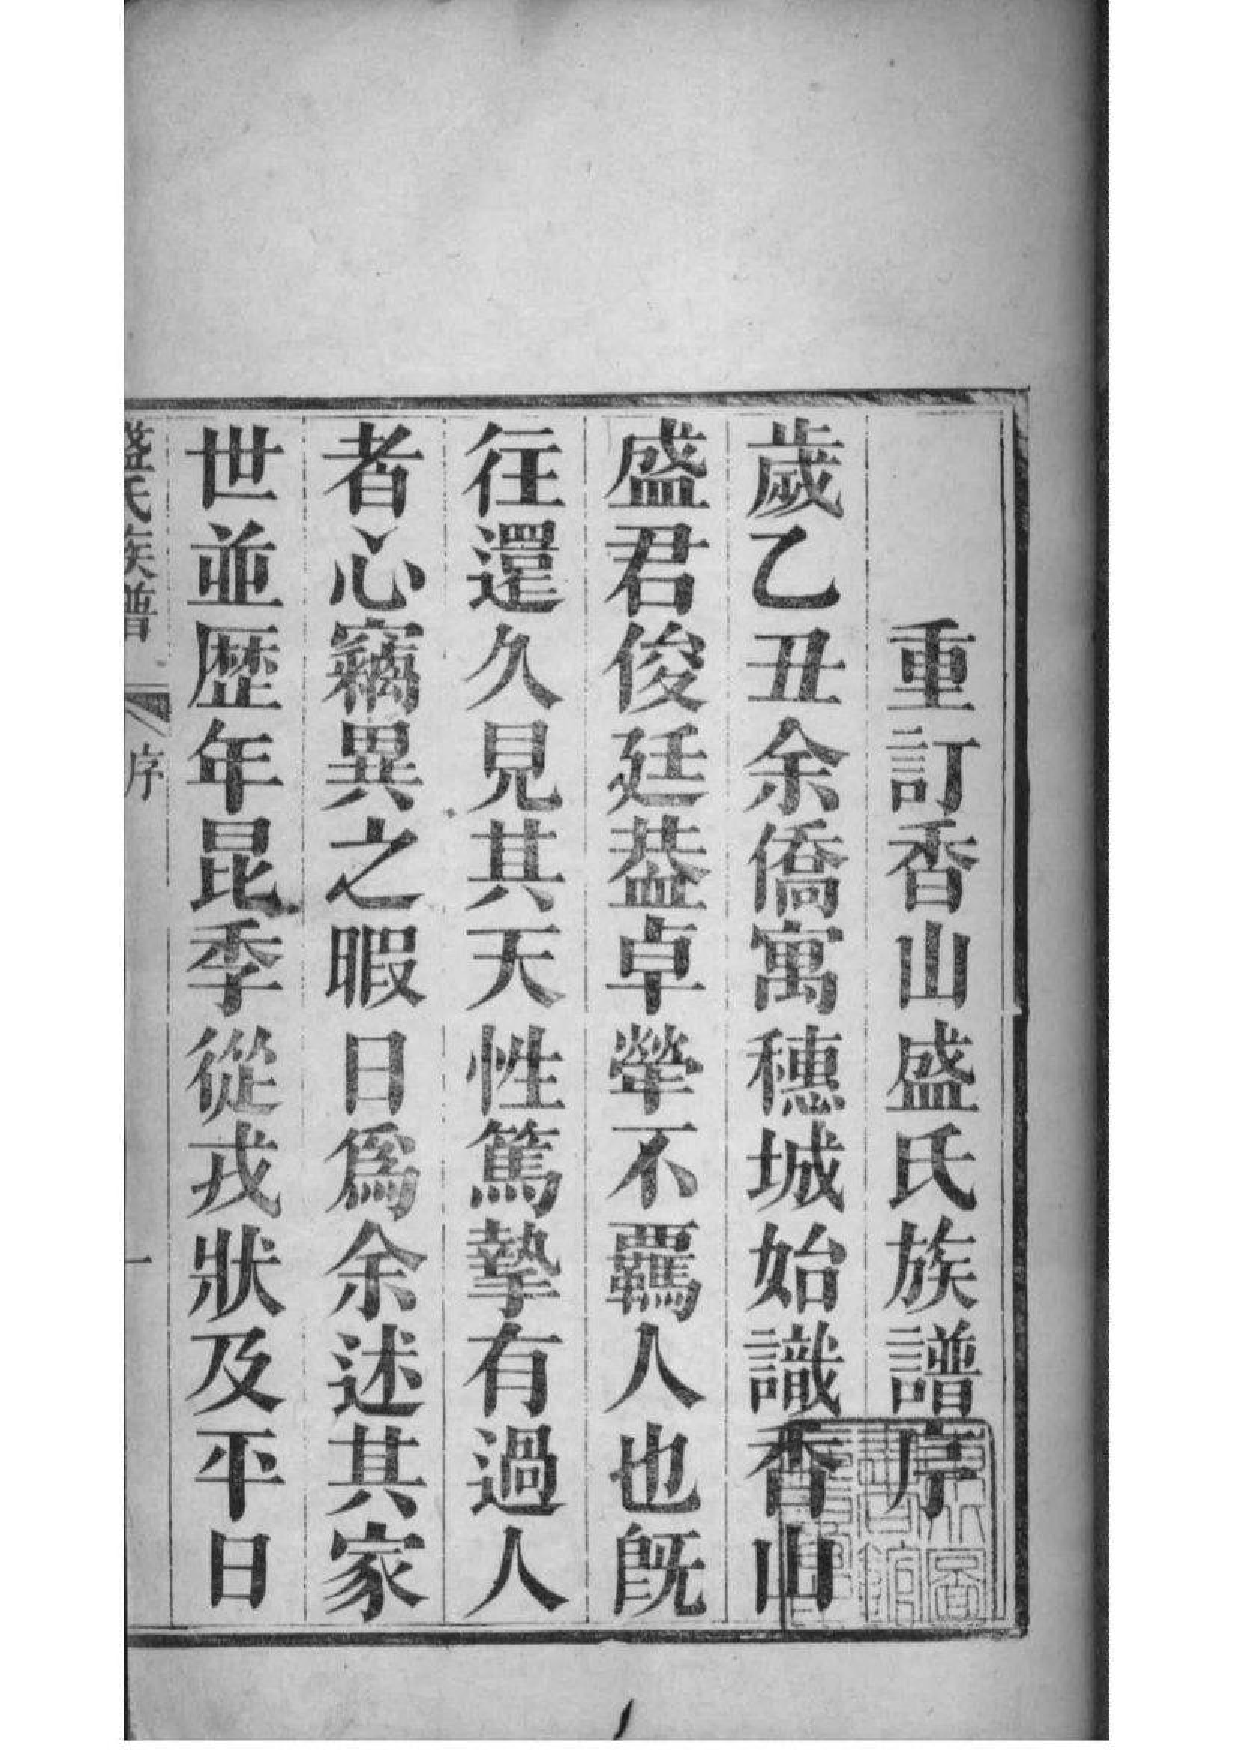 重訂香山盛氏族譜序
歲乙丑余僑寓穗城始識香山
盛君俊廷葢卓犖不羈人也旣
往還久見其天性篤摯有過人
者心竊異之暇日爲余述其家
世並歷年昆季從戎狀及平日
盛氏族譜
序
一